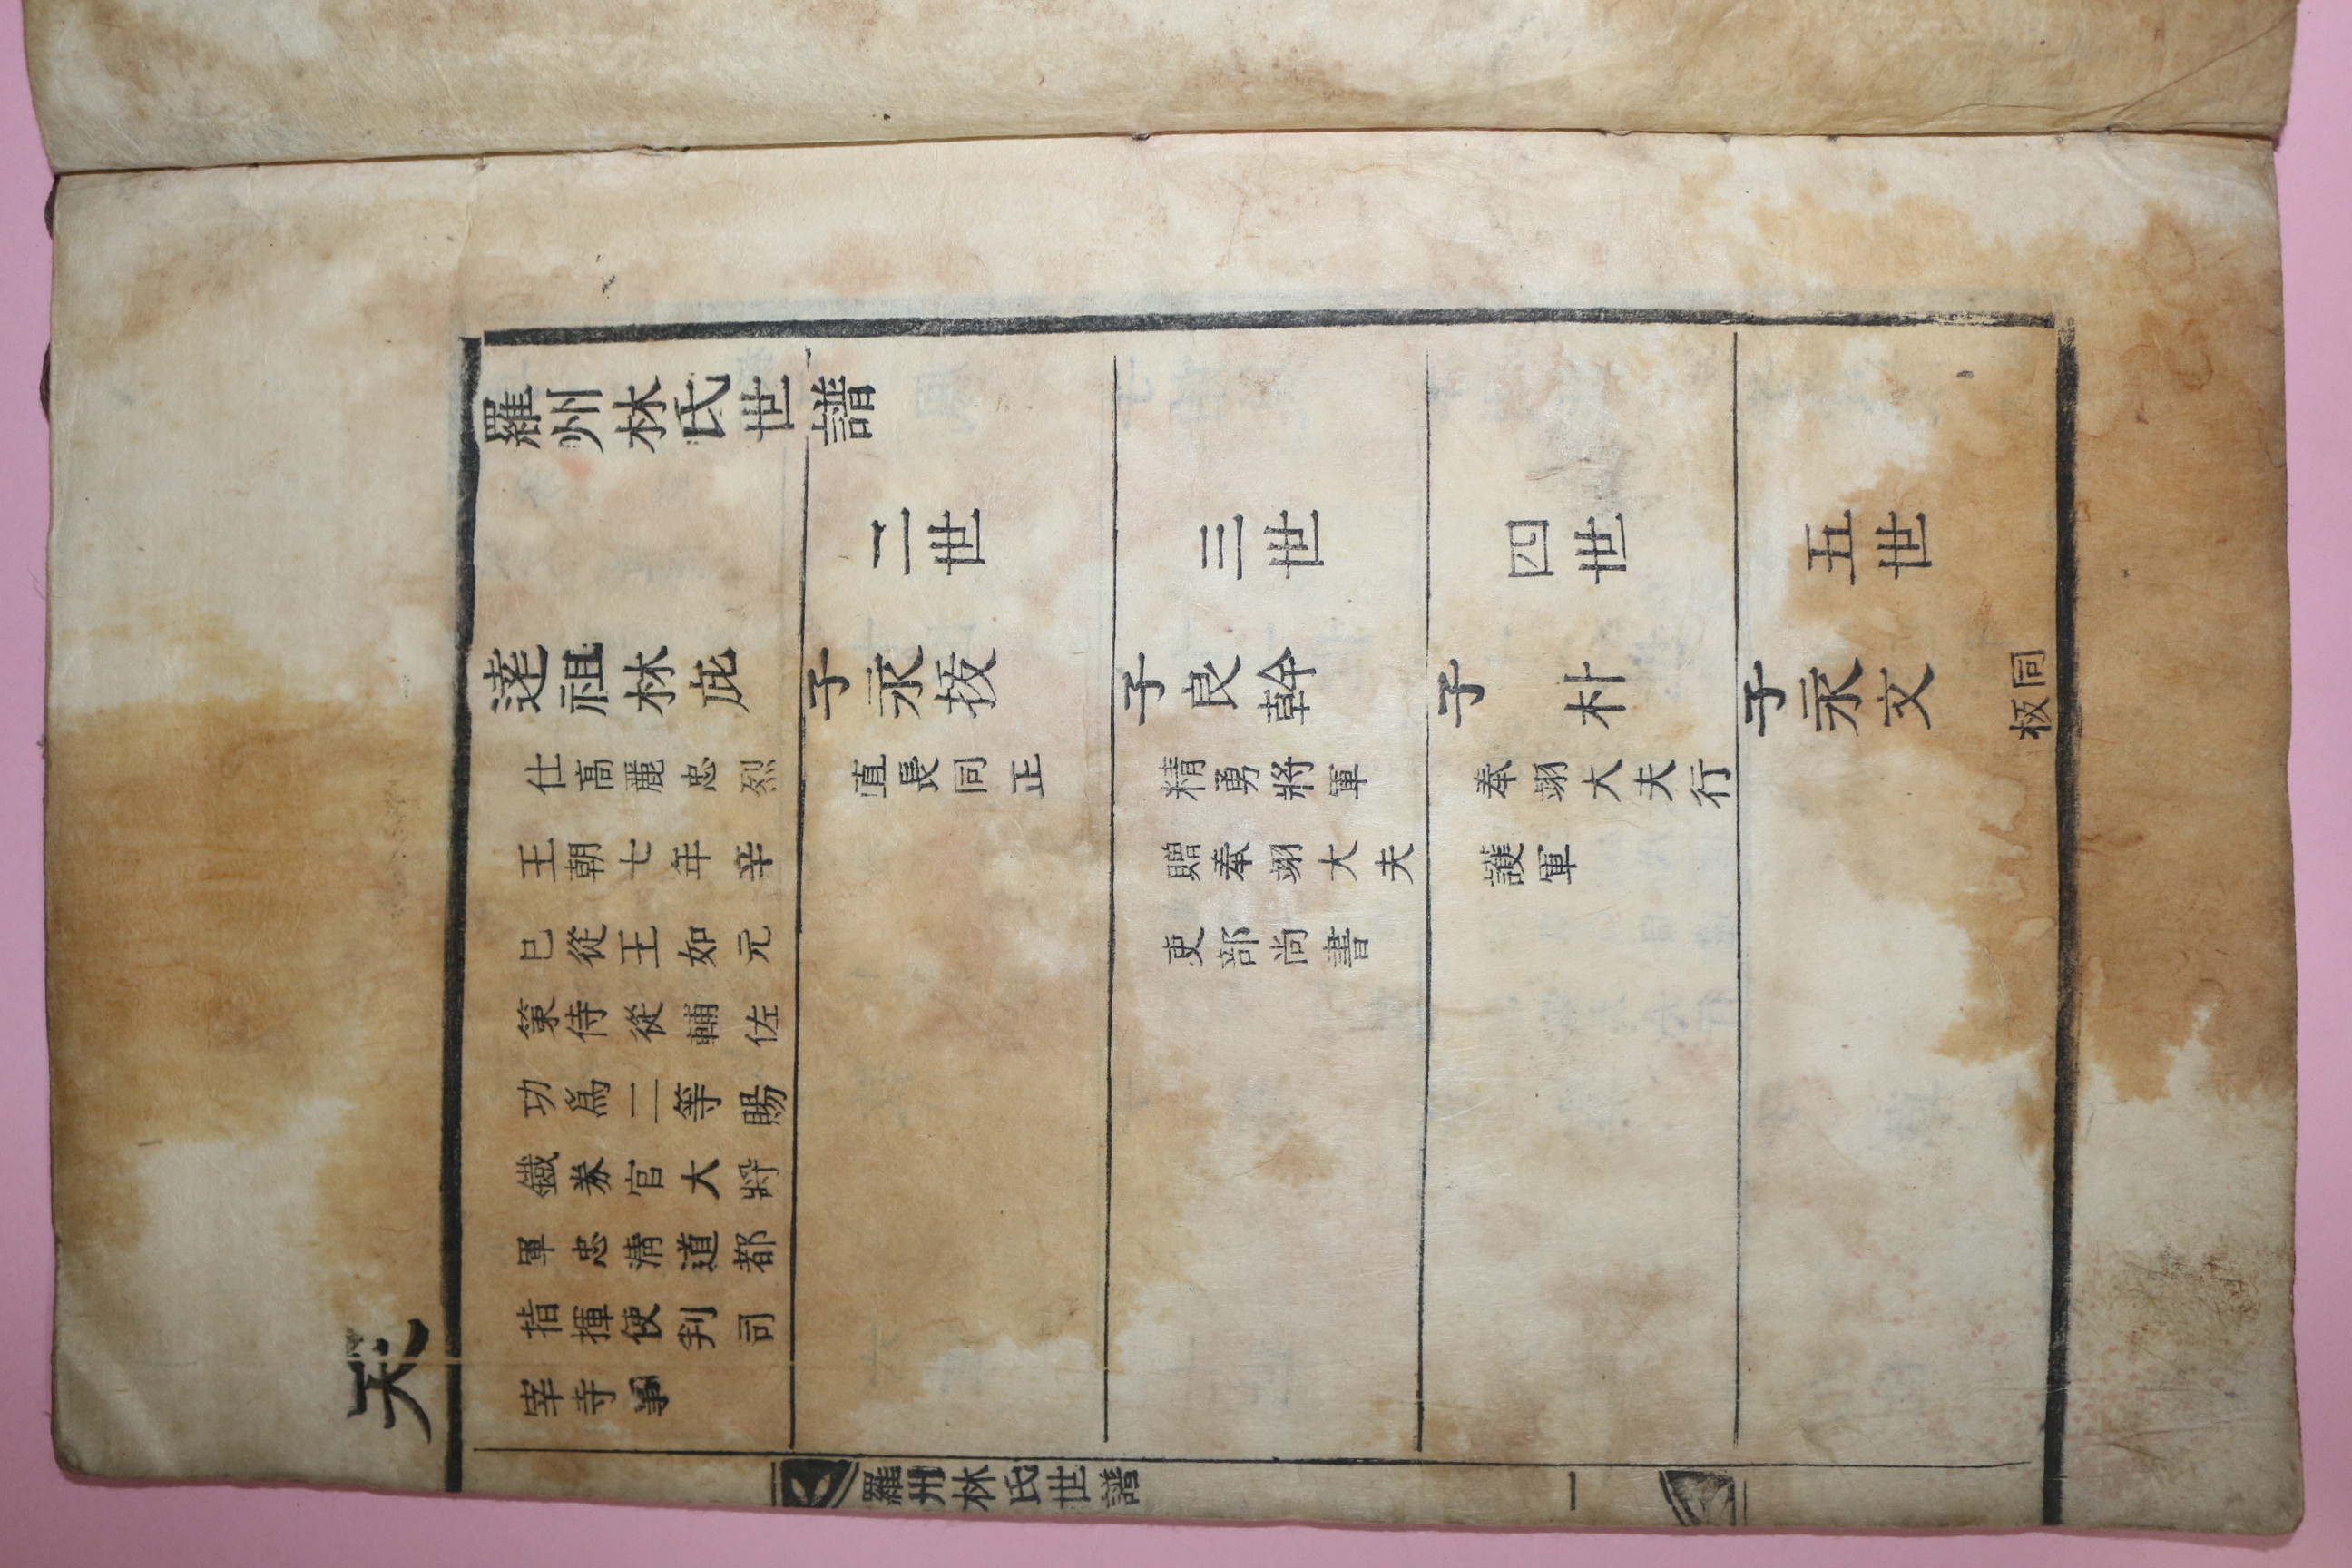 羅州林氏世譜
二世
三世
四世
五世
逹祖林庇
仕高麗忠烈
王朝七年辛
巳從王如元
策侍從輔佐
功爲二等賜
鐵券官大將
軍忠淸道都
指揮使判司
宰寺事
子永抜
直長同正
子良幹
精勇將軍
贈奉翊大夫
吏部尚書
子 朴
奉翊大夫行
護軍
子永文
同
板
天
羅州林氏世譜 一